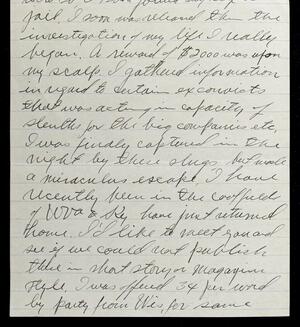 jail, I soon was released then the
investigation of my life I really
began. A reward of $2000 was upon
my scalp. I gathered information
in regard to certain exconvicts
that was acting in capacity of
sleuths for the big companies etc,
I was finally captured in the
night by these slugs but made
a miraculus escape. I have
recently been in the coalfield
of WVa & Ky have just returned
home. I'd like to meet you and
see if we could not publish
this in short story or magazine
style, I was offered 3¢ per word
by party from Wis, for same